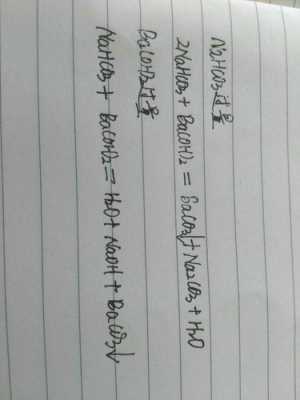 NaHCO3过量
2NaHCO3 + Ba(OH)2 = BaCO3↓+ Na2CO3 + H2O
Ba(OH)2过量
NaHCO3 + Ba(OH)2 = H2O + NaOH + BaCO3↓